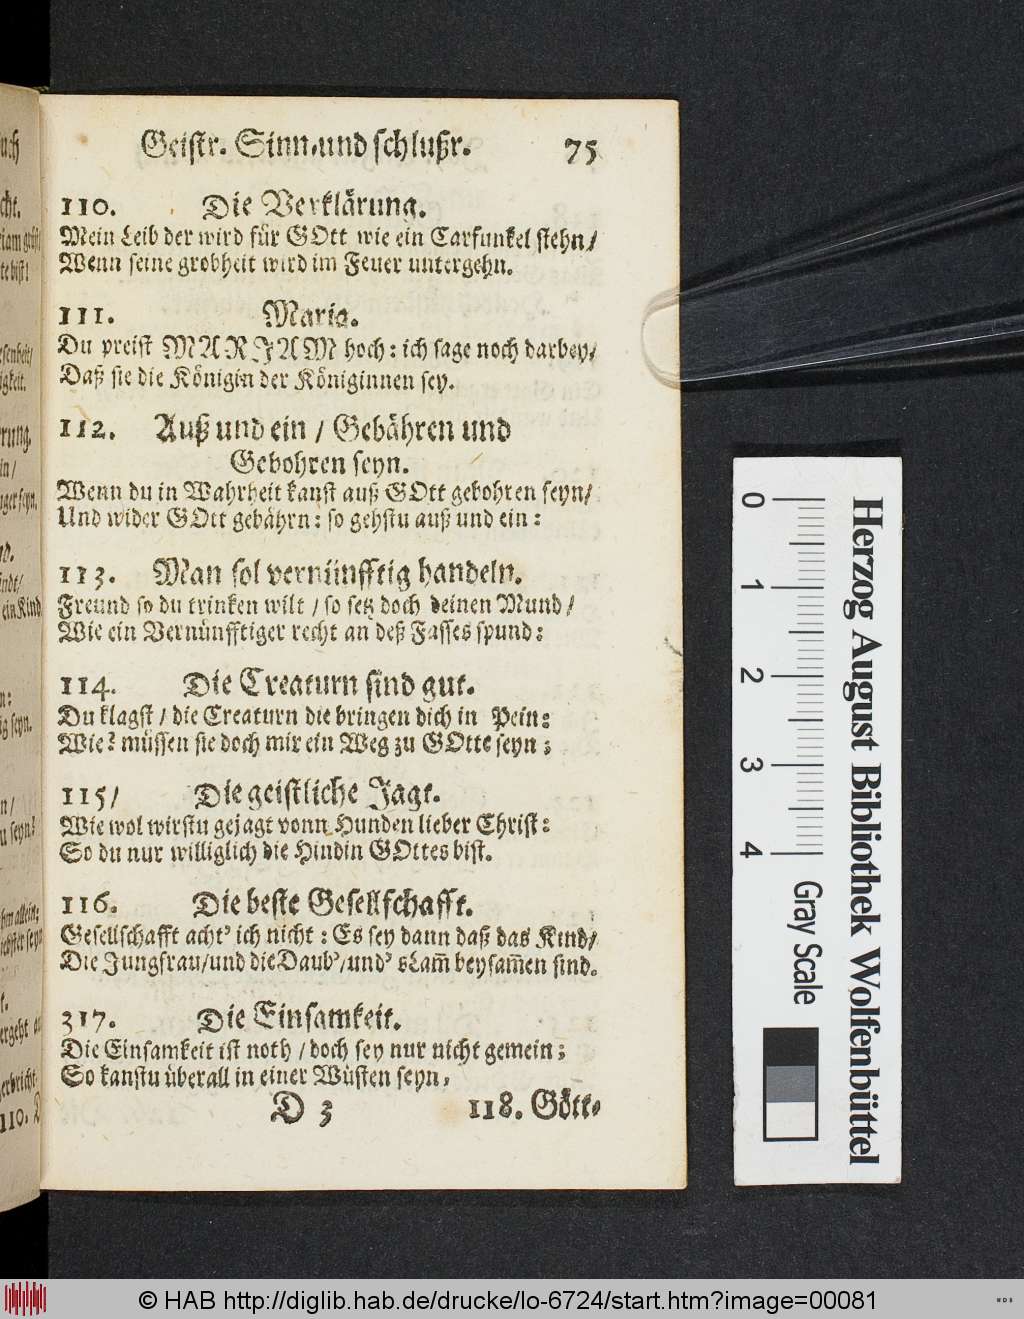 Geistr. Sinn-und schlußr. 75
110. Die Verklärung.
Mein Leib der wird für GOtt wie ein Carfunkel stehn/
Wenn seine grobheit wird im Feuer untergehn.
111. Maria.
Du preist MARJAM hoch: ich sage noch darbey/
Daß sie die Königin der Königinnen sey.
112. Auß und ein / Gebähren und
Gebohren seyn.
Wenn du in Wahrheit kanst auß GOtt gebohren seyn/
Und wider GOtt gebährn: so gehstu auß und ein:
113. Man sol vernünfftig handeln.
Freund so du trinken wilt / so setz doch deinen Mund /
Wie ein Vernünfftiger recht an deß Fasses spund:
114. Die Creaturn sind gut.
Du klagst / die Creaturn die bringen dich in Pein:
Wie? müssen sie doch mir ein Weg zu GOtte seyn;
115/ Die geistliche Jagt.
Wie wol wirstu gejagt vonn Hunden lieber Christ:
So du nur williglich die Hindin GOttes bist.
116. Die beste Gesellschafft.
Gesellschafft acht' ich nicht: Es sey dann daß das Kind/
Die Jungfrau/und die Daub'/und' s Lam̃ beysam̃en sind.
317. Die Einsamkeit.
Die Einsamkeit ist noth / doch sey nur nicht gemein;
So kanstu überall in einer Wüsten seyn,
D 3 118. Gött-
0 1 2 3 4
Gray Scale
Herzog August Bibliothek Wolfenbüttel
© HAB http://diglib.hab.de/drucke/lo-6724/start.htm?image=00081